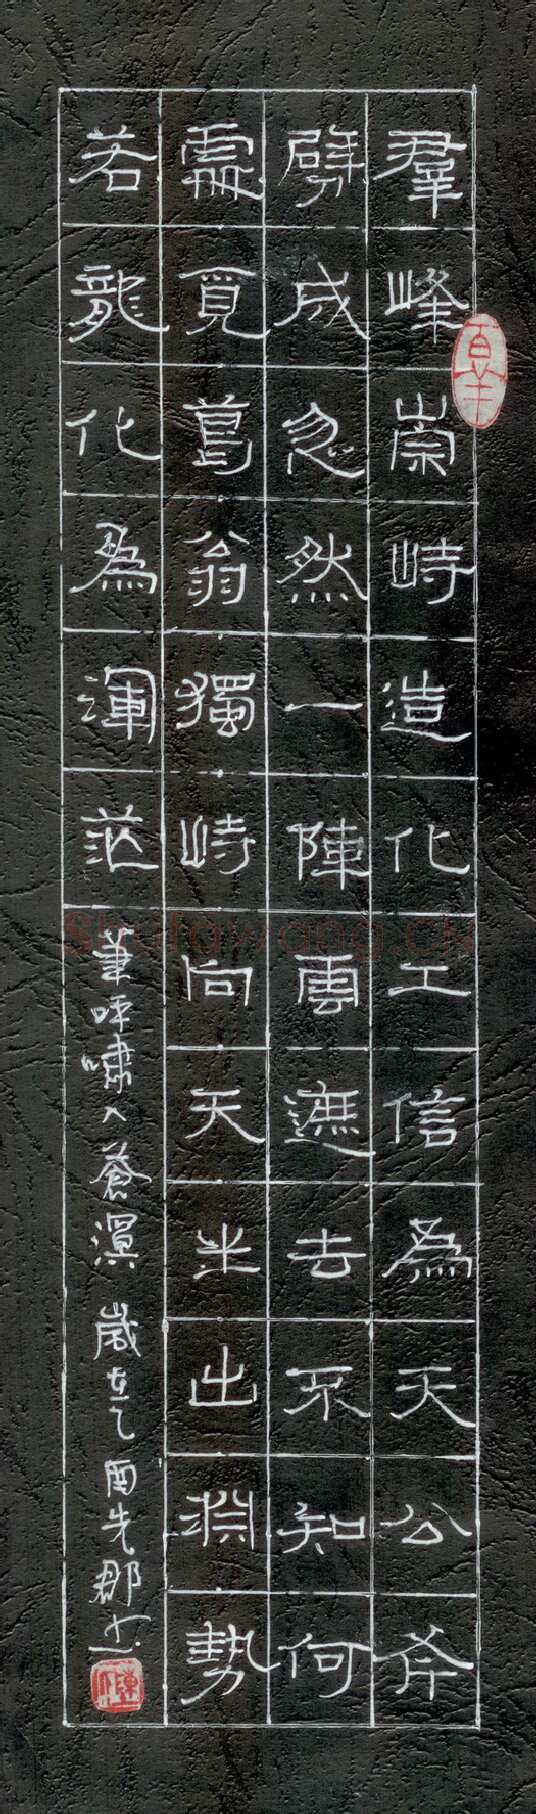 羣峰崇峙造化工信為天公斧
劈成忽然一陣雲遮去不知何
處覓葛翁獨峙向天半出淵勢
若龍化為渾茫
筆呼嘯入蒼溟 歲在乙酉先郡书
Shufawang.CN